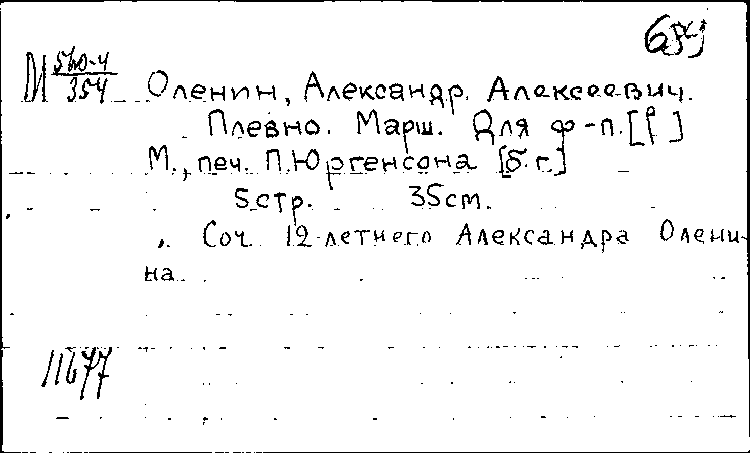 М 560-4/354
Оленин, Александр Алексеевич.
Плевно. Марш. Для ф-п.
М., печ. П. Юргенсона [б.г.]
5 стр. 35 см.
Соч. 12-летнего Александра Олени-
на
11677